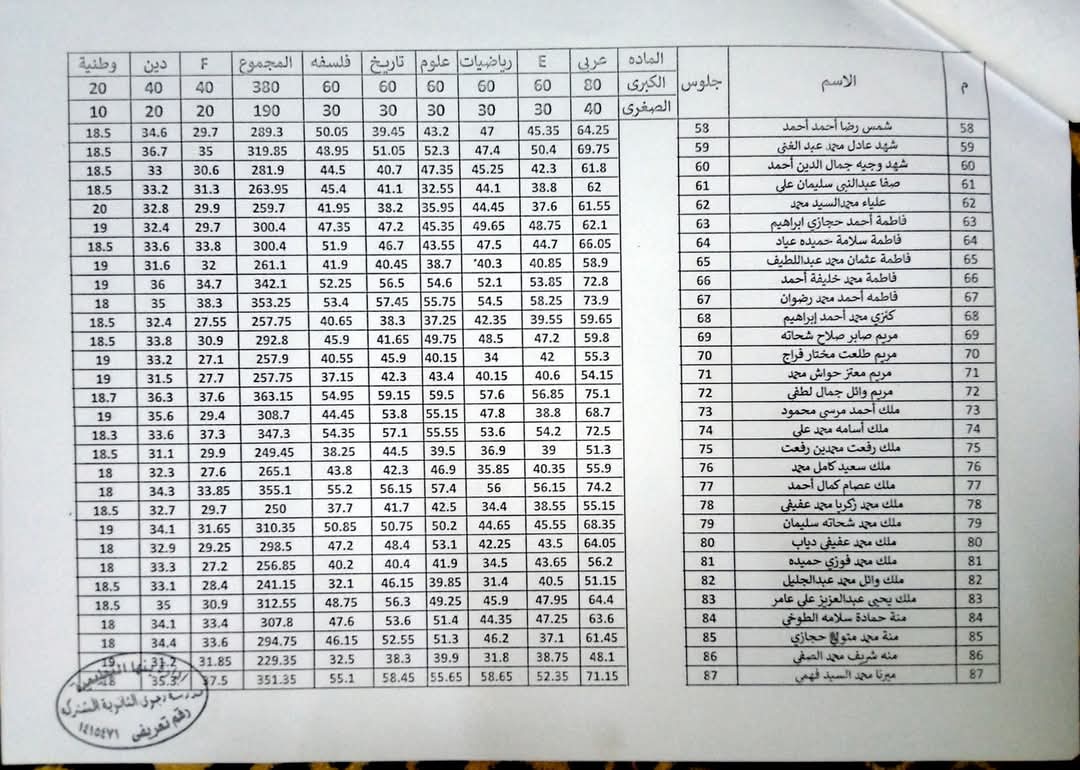 م الاسم جلوس الماده عربى E رياضيات علوم تاريخ فلسفه المجموع F دين وطنية
الكبرى 80 60 60 60 60 60 380 40 40 20
الصغرى 40 30 30 30 30 30 190 20 20 10
58 شمس رضا أحمد أحمد 58 64.25 45.35 47 43.2 39.45 50.05 289.3 29.7 34.6 18.5
59 شهد عادل محمد عبد الغنى 59 69.75 50.4 47.4 52.3 51.05 48.95 319.85 35 36.7 18.5
60 شهد وجيه جمال الدين أحمد 60 61.8 42.3 45.25 47.35 40.7 44.5 281.9 30.6 33 18.5
61 صفا عبدالنبى سليمان على 61 62 38.8 44.1 32.55 41.1 45.4 263.95 31.3 33.2 18.5
62 علياء محمدالسيد محمد 62 61.55 37.6 44.45 35.95 38.2 41.95 259.7 29.9 32.8 20
63 فاطمة أحمد حجازي ابراهيم 63 62.1 48.75 49.65 45.35 47.2 47.35 300.4 29.7 32.4 19
64 فاطمة سلامة حميده عياد 64 66.05 44.7 47.5 43.55 46.7 51.9 300.4 33.8 33.6 18.5
65 فاطمة عثمان محمد عبداللطيف 65 58.9 40.85 40.3 38.7 40.45 41.9 261.1 32 31.6 19
66 فاطمة محمد خليفة أحمد 66 72.8 53.85 52.1 54.6 56.5 52.25 342.1 34.7 36 19
67 فاطمه أحمد محمد رضوان 67 73.9 58.25 54.5 55.75 57.45 53.4 353.25 38.3 35 18
68 كنزي محمد أحمد إبراهيم 68 59.65 39.55 42.35 37.25 38.3 40.65 257.75 27.55 32.4 18.5
69 مريم صابر صلاح شحاته 69 59.8 47.2 48.5 49.75 41.65 45.9 292.8 30.9 33.8 18.5
70 مريم طلعت مختار فراج 70 55.3 42 34 40.15 45.9 40.55 257.9 27.1 33.2 19
71 مريم معتز حواش محمد 71 54.15 40.6 40.15 43.4 42.3 37.15 257.75 27.7 31.5 19
72 مريم وائل جمال لطفى 72 75.1 56.85 57.6 59.5 59.15 54.95 363.15 37.6 36.3 18.7
73 ملك أحمد مرسي محمود 73 68.7 38.8 47.8 55.15 53.8 44.45 308.7 29.4 35.6 19
74 ملك أسامه محمد على 74 72.5 54.2 53.6 55.55 57.1 54.35 347.3 37.3 33.6 18.3
75 ملك رفعت محمدين رفعت 75 51.3 39 36.9 39.5 44.5 38.25 249.45 29.9 31.1 18.5
76 ملك سعيد كامل محمد 76 55.9 40.35 35.85 46.9 42.3 43.8 265.1 27.6 32.3 18
77 ملك عصام كمال أحمد 77 74.2 56.15 56 57.4 56.15 55.2 355.1 33.85 34.3 18
78 ملك محمد زكريا محمد عفيفى 78 55.15 38.55 34.4 42.5 41.7 37.7 250 29.7 32.7 18.5
79 ملك محمد شحاته سليمان 79 68.35 45.55 44.65 50.2 50.75 50.85 310.35 31.65 34.1 19
80 ملك محمد عفيفى دياب 80 64.05 43.5 42.25 53.1 48.4 47.2 298.5 29.25 32.9 18
81 ملك محمد فوزي حميده 81 56.2 43.65 34.5 41.9 40.4 40.2 256.85 27.2 33.3 18
82 ملك وائل محمد عبدالجليل 82 51.15 40.5 31.4 39.85 46.15 32.1 241.15 28.4 33.1 18.5
83 ملك يحيى عبدالعزيز على عامر 83 64.4 47.95 45.9 49.25 56.3 48.75 312.55 30.9 35 18.5
84 منة حمادة سلامه الطوخي 84 63.6 47.25 44.35 51.4 53.6 47.6 307.8 33.4 34.1 18
85 منة محمد متولى حجازي 85 61.45 37.1 46.2 51.3 52.55 46.15 294.75 33.6 34.4 18
86 منه شريف محمد الصفي 86 48.1 38.75 31.8 39.9 38.3 32.5 229.35 31.85 31.2 19
87 ميرنا محمد السيد فهمي 87 71.15 52.35 58.65 55.65 58.45 55.1 351.35 37.5 35.3 18
الثانوية المشتركة
رقم تعريفى
١٤١٥٤٧١